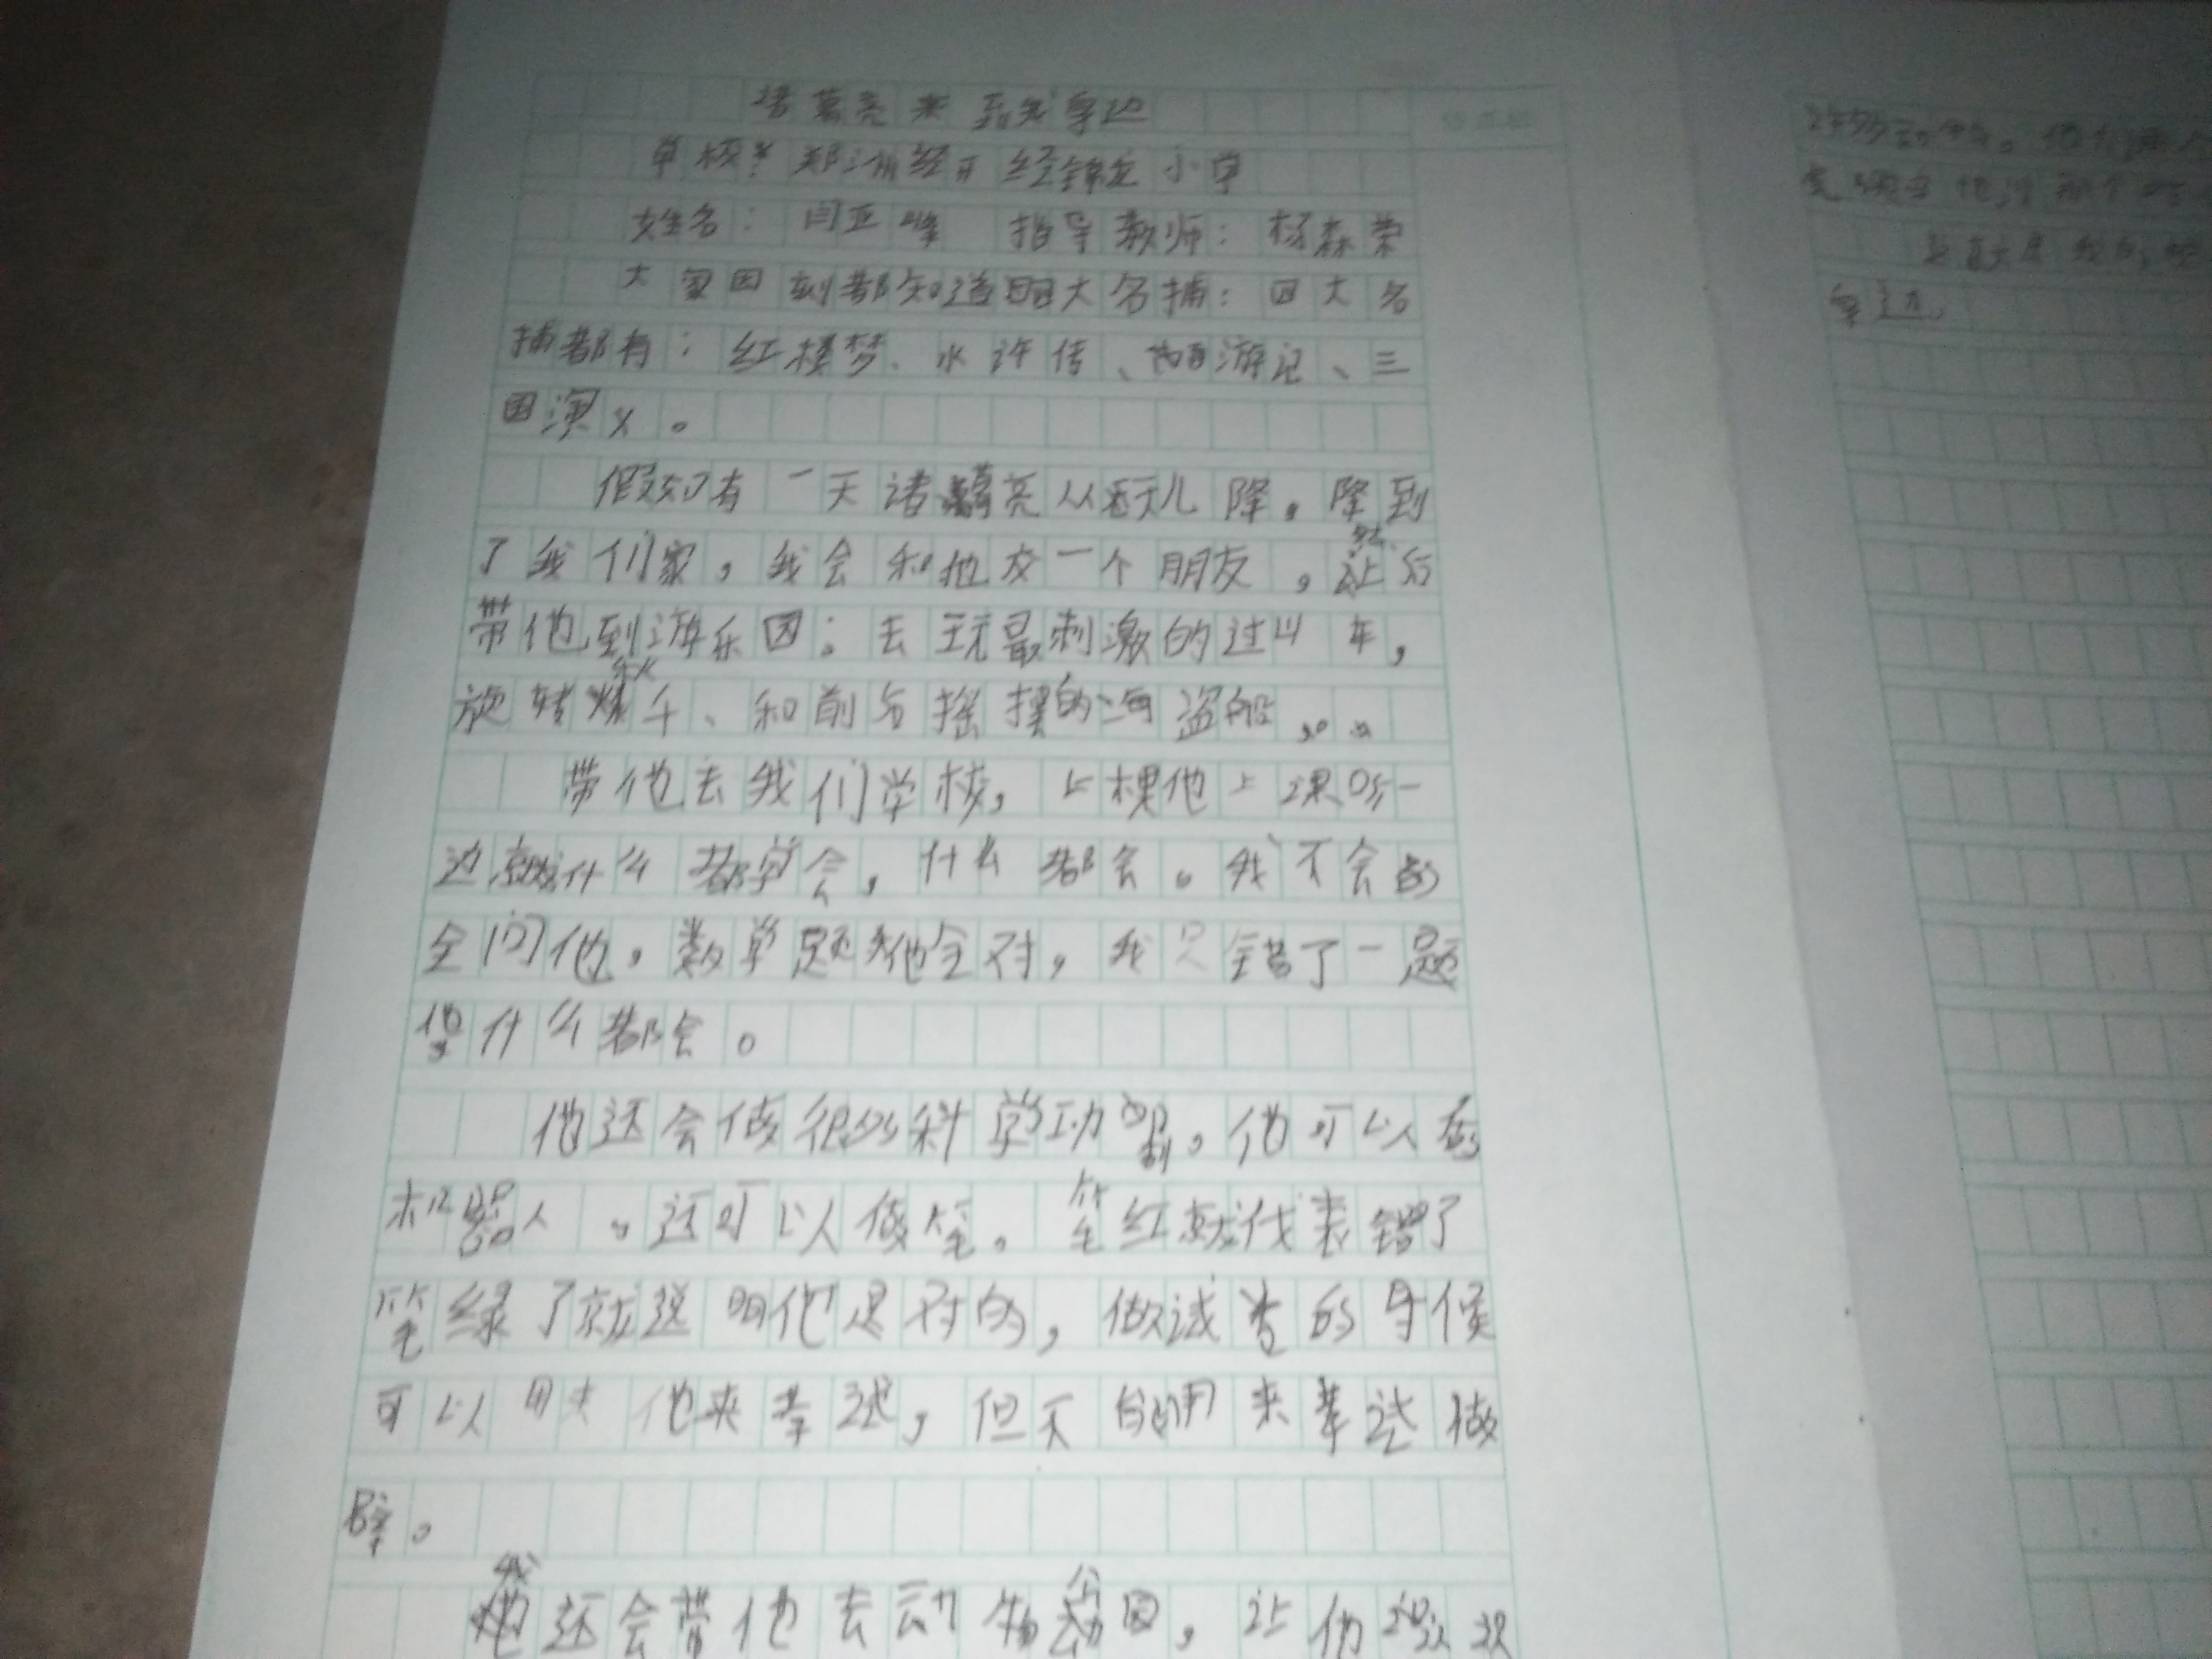 诸葛亮来到我身边
学校：郑洲经开经锦龙小学
姓名：闫亚峰 指导教师：杨森荣
大家因刻都知道四大名捕：四大名
捕都有：红楼梦、水许传、西游记、三
国演义。
假如有一天诸葛亮从天儿降。降到
了我们家，我会和他交一个朋友，然后
带他到游乐园：去玩最刺激的过山车，
旋转秋千、和前后摇摆的海盗船。。
带他去我们学校，上课他上课听一
边就什么都学会，什么都会。我不会的
全问他，数学题他全对，我只错了一题
他什么都会。
他还会做很多科学功，他可以做
机器人，还可以做笔。笔红就代表错了
笔绿了就说明他是对的，做试卷的时候
可以用来考试，但不能用来考试做
弊。
我还会带他去动物园，让他认识
身边